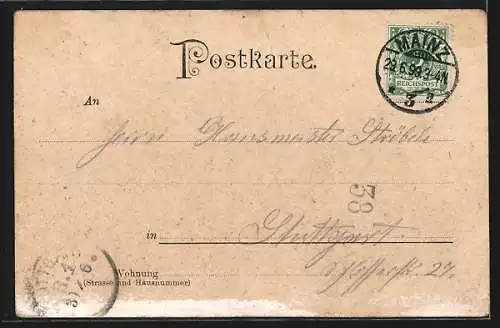 Postkarte.
MAINZ
29.6.98.3-4N
* 3 a
REICHSPOST
An
Herrn Hausmeister Ströbele
38
in Stuttgart
27.
Wohnung
(Strasse und Hausnummer)